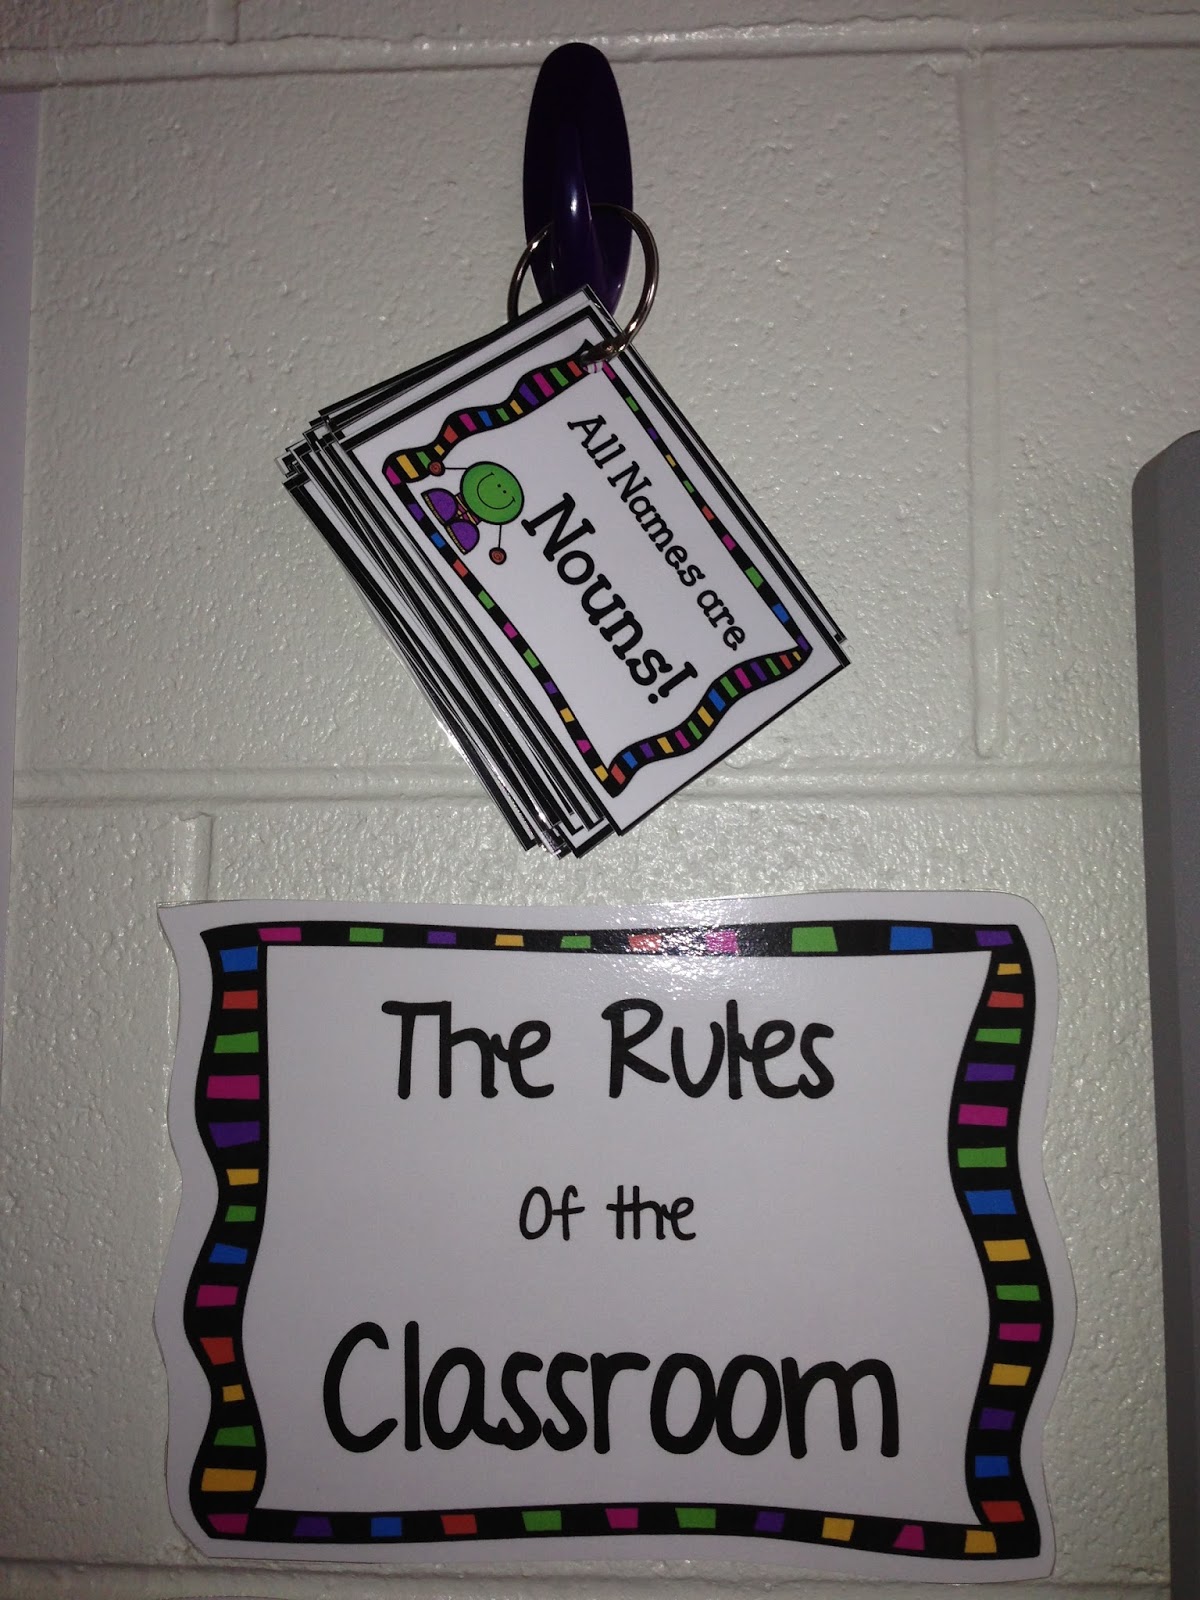 All Names are
Nouns!
The Rules
Of the
Classroom